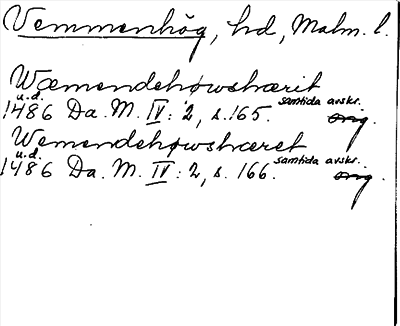 Vemmenhög, hd, Malm. l.
Wæmendehowshærit
u.d. samtida avskr.
1486 Da. M. IV: 2, s. 165. orig.
Wemendehøwshæret
u.d. samtida avskr.
1486 Da. M. IV: 2, s. 166. orig.